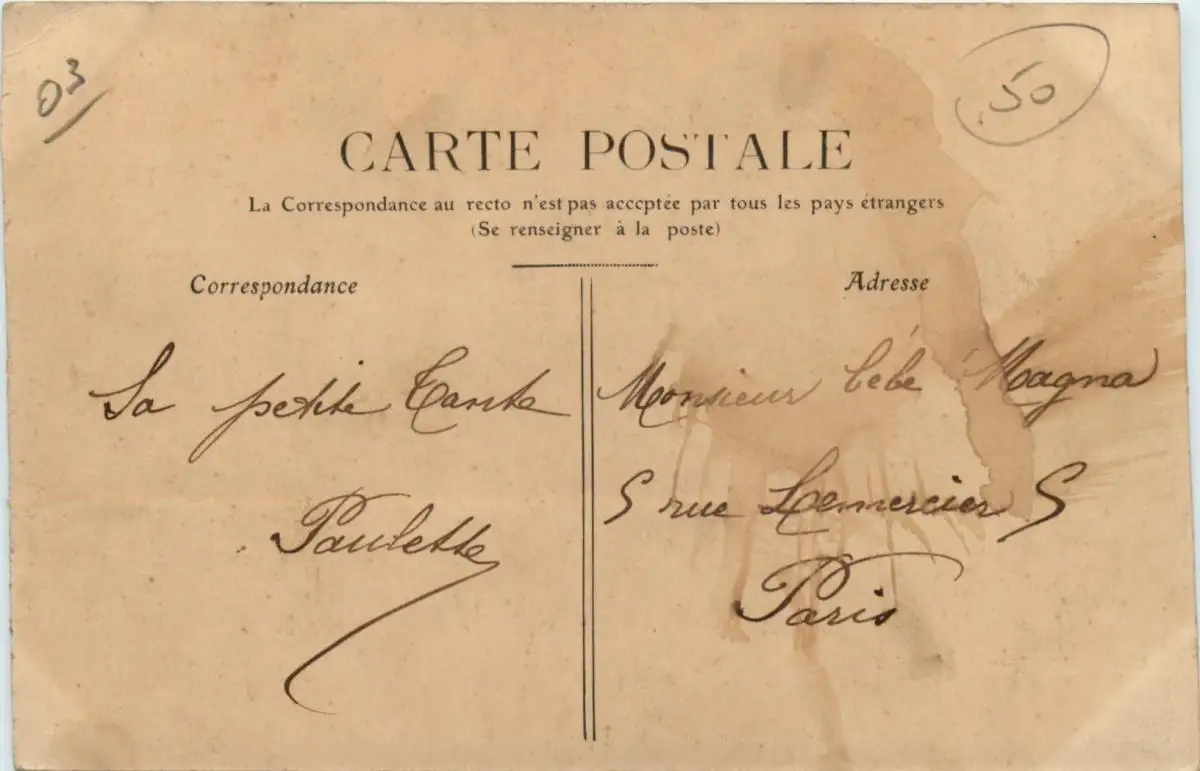 03
50
CARTE POSTALE
La Correspondance au recto n'est pas acccptée par tous les pays étrangers
(Se renseigner à la poste)
Correspondance
Adresse
Sa petite Tante
Paulette
Monsieur bébé Magna
5 rue Lemercier 5
Paris